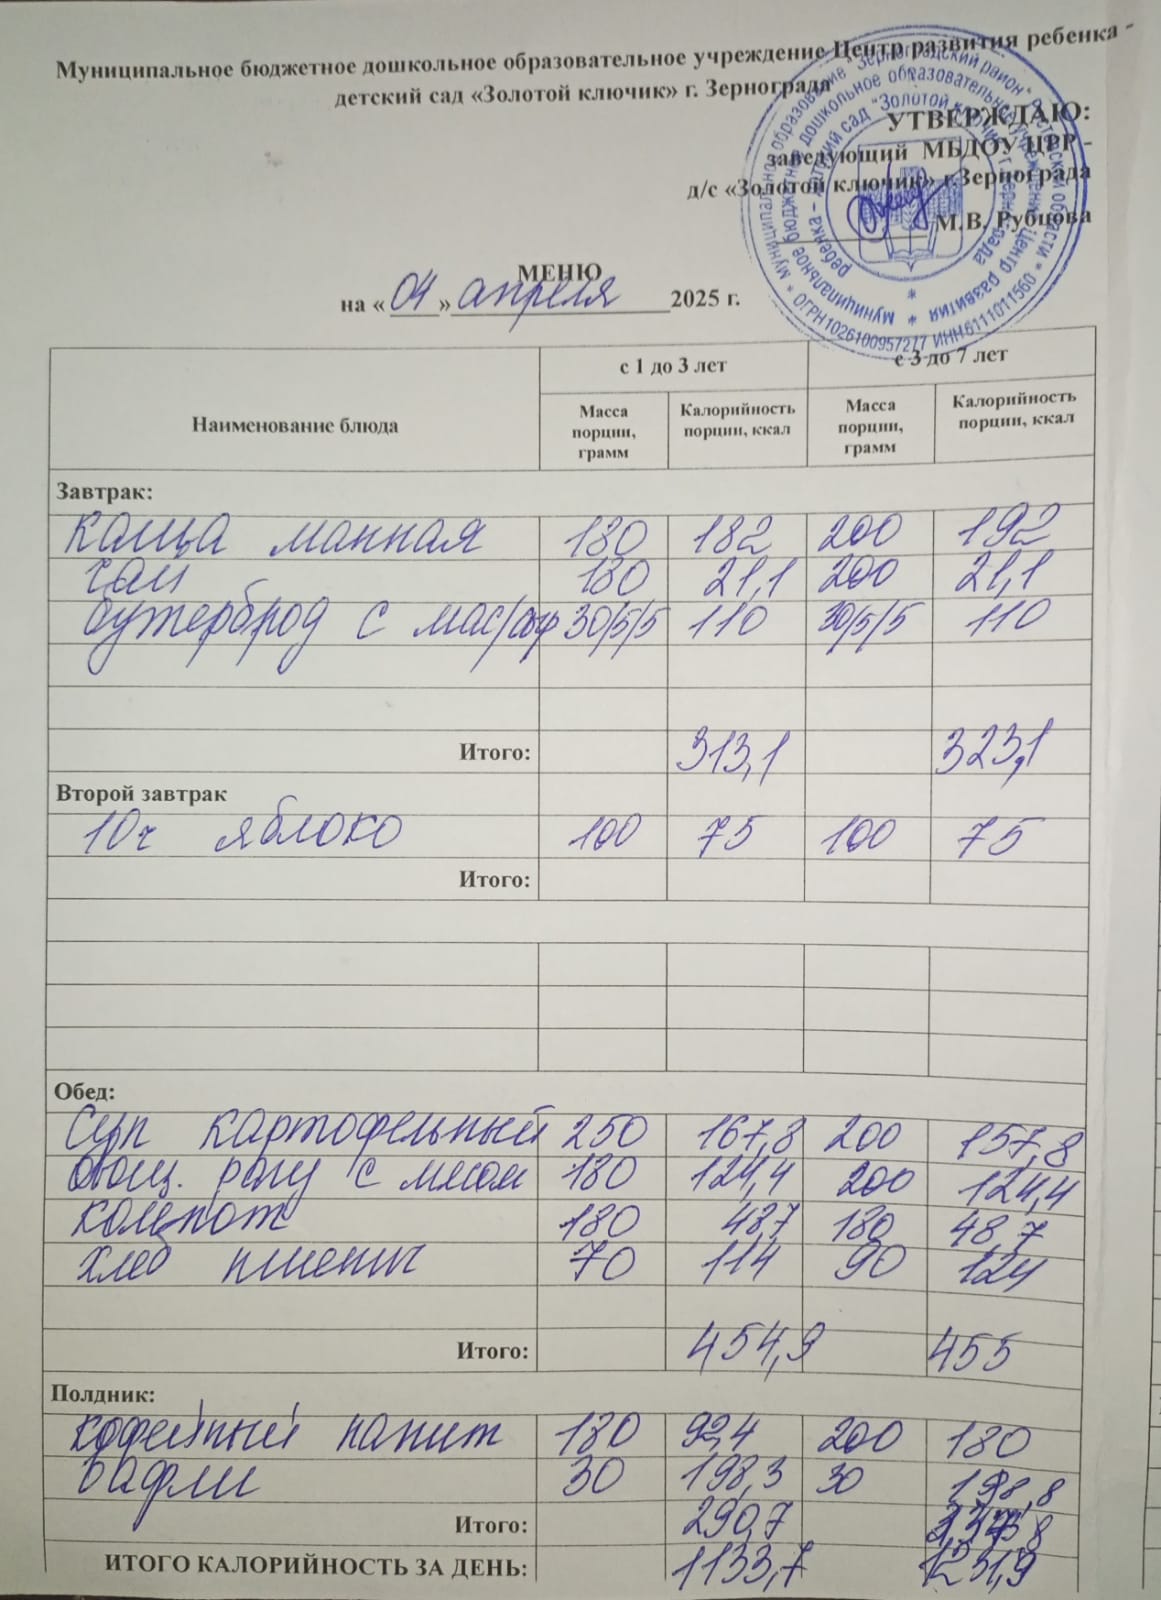 Муниципальное бюджетное дошкольное образовательное учреждение Центр развития ребенка -
детский сад «Золотой ключик» г. Зернограда
УТВЕРЖДАЮ:
заведующий МБДОУ ЦРР -
д/с «Золотой ключик» г.Зернограда
М.В. Рубцова
МЕНЮ
на «04» апреля 2025 г.
Наименование блюда с 1 до 3 лет с 3 до 7 лет
Масса порции, грамм Калорийность порции, ккал Масса порции, грамм Калорийность порции, ккал
Завтрак:
Каша манная 180 182 200 192
чай 180 21,1 200 21,1
бутерброд с мас/сыр 30/5/5 110 30/5/5 110
Итого: 313,1 323,1
Второй завтрак
10ч яблоко 100 75 100 75
Итого:
Обед:
Суп картофельный 250 167,8 200 157,8
овощ. рагу с мясом 180 124,4 200 124,4
компот 180 48,7 180 48,7
хлеб пшенич 70 114 90 124
Итого: 454,9 455
Полдник:
кофейный напит 180 92,4 200 180
вафли 30 198,3 30 198,8
Итого: 290,7
ИТОГО КАЛОРИЙНОСТЬ ЗА ДЕНЬ: 1133,7 1231,9